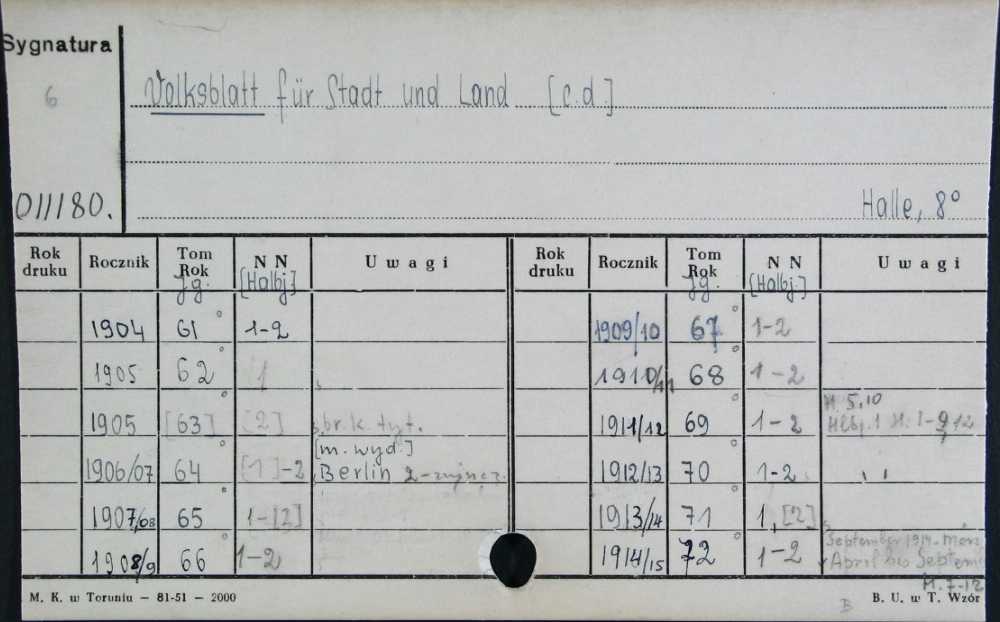 Sygnatura
6
Volksblatt für Stadt und Land [c.d.]
OIII180.
Halle, 8°
Rok druku Rocznik Tom Rok Jg. N N [Halbj] Uwagi Rok druku Rocznik Tom Rok Jg. N N [Halbj.] Uwagi
1904 61° 1-2 1909/10 67° 1-2
1905 62° 1 1910/11 68° 1-2
H. 5,10
1905 [63]° [2] br. k. tyt. 1911/12 69° 1-2 Hlbj. 1 H. 1-9, 12
[m. wyd.]
1906/07 64° [1]-2 Berlin 1912/13 70° 1-2
1907/08 65° 1-[2] 1913/14 71° 1, [2]
September 1914
1908/9 66° 1-2 1914/15 72° 1-2 April bis Septem
H. 7-12
M. K. w Toruniu — 81-51 — 2000
B
B. U. w T. Wzór